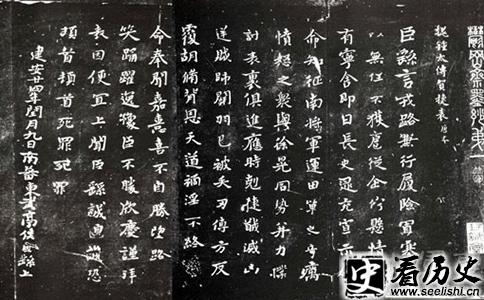 鬱岡齋墨妙第一
魏鍾太傅賀捷表唐本
臣繇言戎路兼行履險冒寒
以無任不獲扈從企佇懸情
有寧舍即日長史逯充宣示
命知征南將軍運田單之奇厲
憤怒之衆與徐晃同勢并力撲
討表裏俱進應時剋捷馘滅凶
逆賊帥關羽已被矢刃傅方反
覆胡脩背恩天道禍淫不終
命奉聞嘉憙喜不自勝望路
笑踴躍逸豫臣不勝欣慶謹拜
表因便宜上聞臣繇誠惶誠恐
頓首頓首死罪死罪
建安廿四年閏月九日南蕃東武亭侯臣繇上
史看历史
www.seelishi.cn